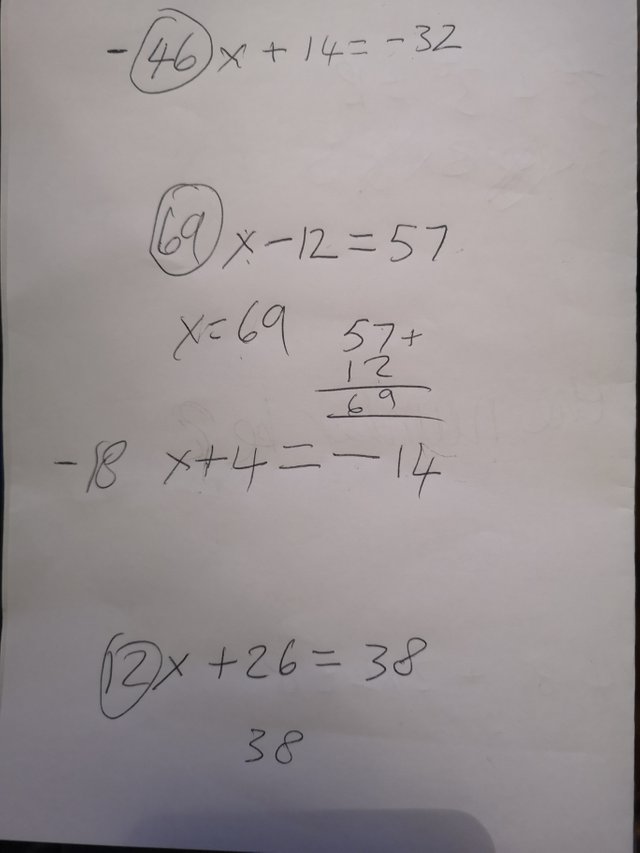 -46x+14=-32
69x-12=57
x=69 57+
12
69
-18 x+4=-14
12x+26=38
38